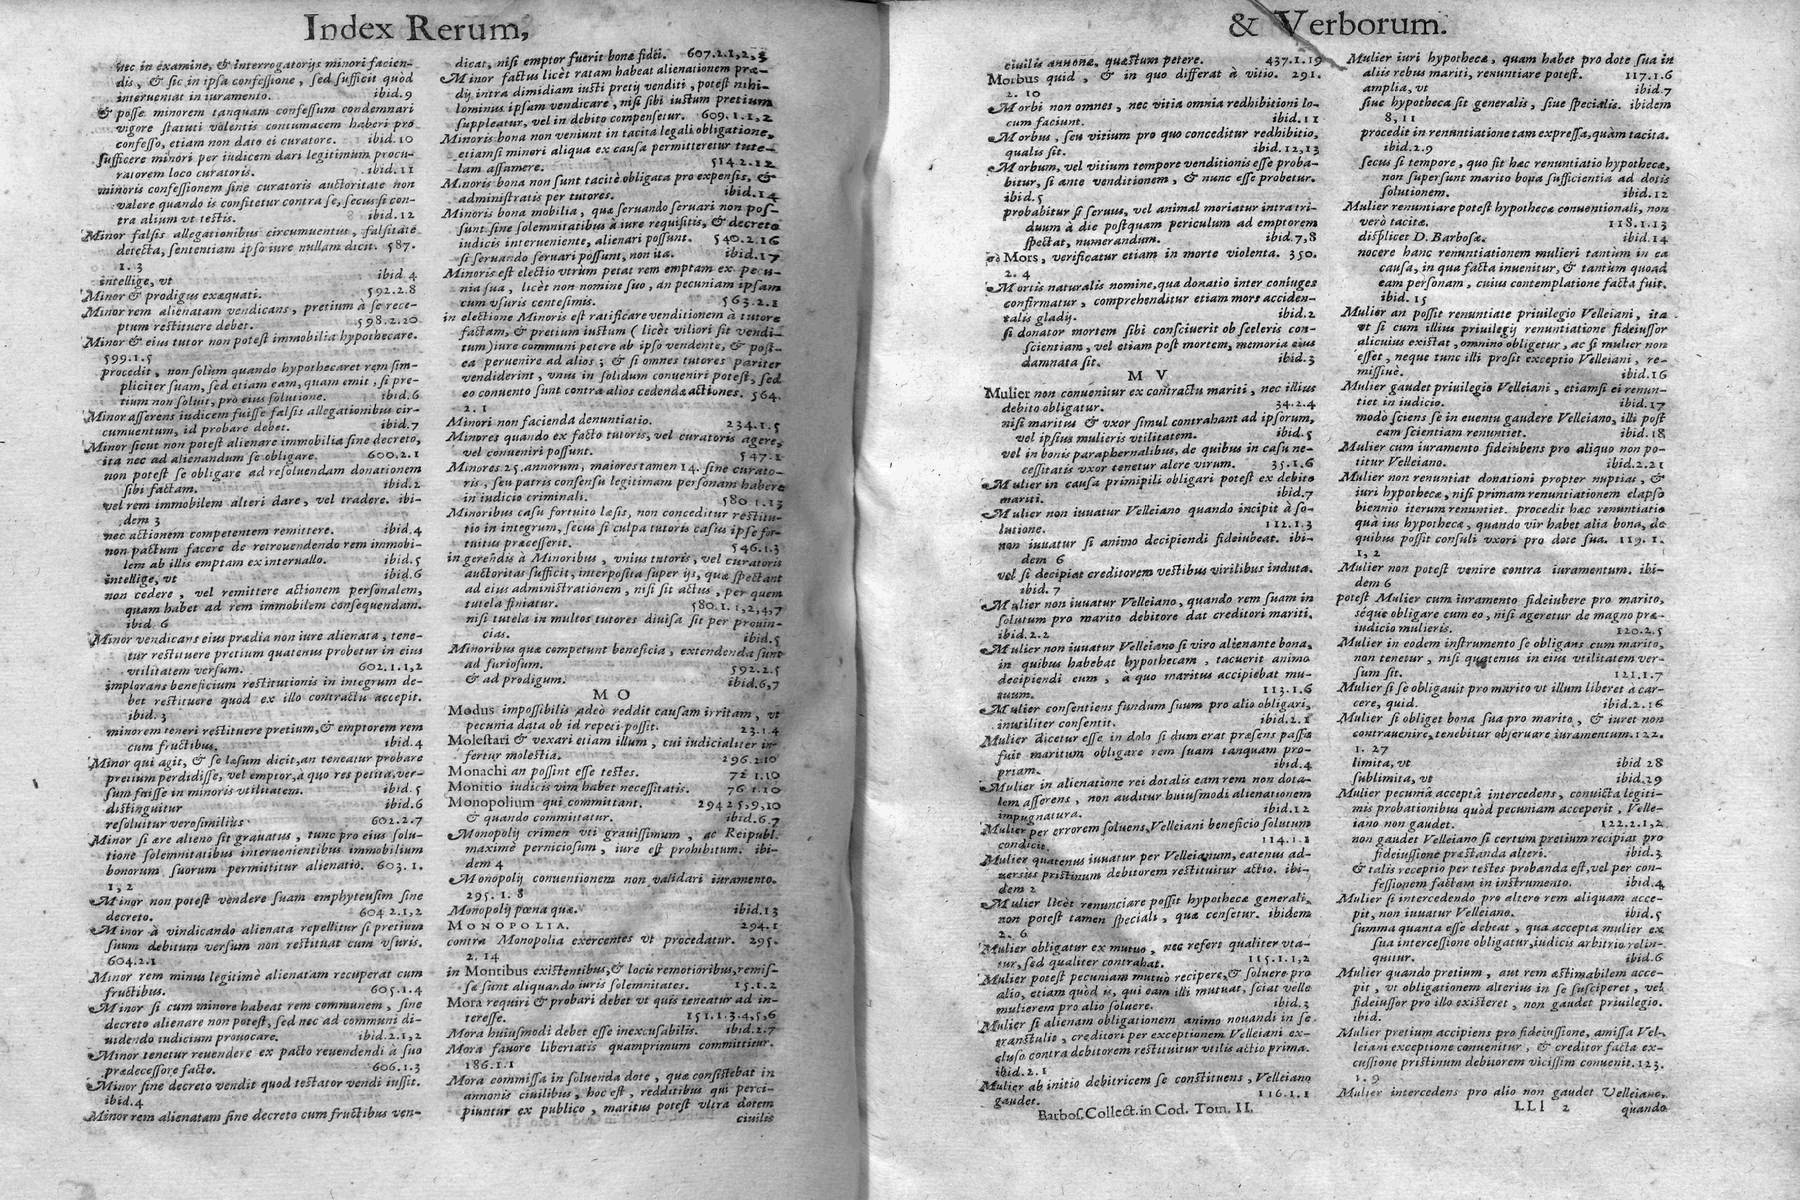 Index Rerum,
nec in examine, & interrogatorijs minori facien-
dis, & sic in ipsa confessione, sed sufficit quòd
interueniat in iuramento. ibid.9
& posse minorem tanquam confessum condemnari
vigore statuti volentis contumacem haberi pro
confesso, etiam non dato ei curatore. ibid.10
sufficere minori per iudicem dari legitimum procu-
ratorem loco curatoris. ibid.11
minoris confessionem sine curatoris auctoritate non
valere quando is confitetur contra se, secus si con-
tra alium vt testis. ibid.12
Minor falsis allegationibus circumuentus, falsitate
detecta, sententiam ipso iure nullam dicit. 587.
1.3
intellige, vt ibid 4
Minor & prodigus exæquati. 592.2.8
Minor rem alienatam vendicans, pretium à se rece-
ptum restituere debet. 598.2.20
Minor & eius tutor non potest immobilia hypothecare.
599.1.5
procedit, non solùm quando hypothecaret rem sim-
pliciter suam, sed etiam eam, quam emit, si pre-
tium non soluit, pro eius solutione. ibid.6
Minor asserens iudicem fuisse falsis allegationibus cir-
cumuentum, id probare debet. ibid.7
Minor sicut non potest alienare immobilia sine decreto,
ita nec ad alienandum se obligare. 600.2.1
non potest se obligare ad resoluendam donationem
sibi factam. ibid.2
vel rem immobilem alteri dare, vel tradere. ibi-
dem 3
nec actionem competentem remittere. ibid.4
non pactum facere de retrouendendo rem immobi-
lem ab illis emptam ex internallo. ibid.5
intellige, vt ibid.6
non cedere, vel remittere actionem personalem,
quam habet ad rem immobilem consequendam.
ibid 6
Minor vendicans eius prædia non iure alienata, tene-
tur restituere pretium quatenus probetur in eius
vtilitatem versum. 602.1.1,2
implorans beneficium restitutionis in integrum de-
bet restituere quod ex illo contractu accepit.
ibid. 3
minorem teneri restituere pretium, & emptorem rem
cum fructibus. ibid.4
Minor qui agit, & se læsum dicit, an teneatur probare
pretium perdidisse, vel emptor, à quo res petita, ver-
sum fuisse in minoris vtilitatem. ibid.5
distinguitur ibid.6
resoluitur verosimilius 602.2.7
Minor si ære alieno sit grauatus, tunc pro eius solu-
tione solemnitatibus interuenientibus immobilium
bonorum suorum permittitur alienatio. 603.1.
1,2
Minor non potest vendere suam emphyteusim sine
decreto. 604 2.1,2
Minor à vindicando alienata repellitur si pretium
suum debitum versum non restituat cum vsuris.
604.2.1
Minor rem minus legitimè alienatam recuperat cum
fructibus. 605.1.4
Minor si cum minore habeat rem communem, sine
decreto alienare non potest, sed nec ad communi di-
uidendo iudicium prouocare. ibid.2.1,2
Minor tenetur reuendere ex pacto reuendendi à suo
prædecessore facto. 606.1.3
Minor sine decreto vendit quod testator vendi iussit.
ibid.4
Minor rem alienatam sine decreto cum fructibus ven-
dicat, nisi emptor fuerit bonæ fidei. 607.2.1,2,3
Minor factus licèt ratam habeat alienationem præ-
dij intra dimidiam iusti pretij venditi, potest nihi-
lominus ipsam vendicare, nisi sibi iustum pretium
suppleatur, vel in debito compensetur. 609.1.1,2
Minoris bona non veniunt in tacita legali obligatione,
etiamsi minori aliqua ex causa permitteretur tute-
lam assumere. 514.2.12
Minoris bona non sunt tacitè obligata pro expensis, &
administratis per tutores. ibid.14
Minoris bona mobilia, quæ seruando seruari non pos-
sunt sine solemnitatibus à iure requisitis, & decreto
iudicis interueniente, alienari possunt. 540.2.16
si seruando seruari possunt, non ita. ibid.17
Minoris est electio vtrum petat rem emptam ex pecu-
nia sua, licèt non nomine suo, an pecuniam ipsam
cum vsuris centesimis. 563.2.1
in electione Minoris est ratificare venditionem à tutore
factam, & pretium iustum (licèt viliori sit vendi-
tum) iure communi petere ab ipso vendente, & post-
ea peruenire ad alios; & si omnes tutores pariter
vendiderint, vnus in solidum conueniri potest, sed
eo conuento sunt contra alios cedendæ actiones. 564.
2.1
Minori non facienda denuntiatio. 234.1.5
Minores quando ex facto tutoris, vel curatoris agere,
vel conueniri possunt. 547.1
Minores 25. annorum, maiores tamen 14. sine curato-
ris, seu patris consensu legitimam personam habere
in iudicio criminali. 580.1.13
Minoribus casu fortuito læsis, non conceditur restitu-
tio in integrum, secus si culpa tutoris casus ipse for-
tuitus præcesserit. 546.1.3
in gerendis à Minoribus, vnius tutoris, vel curatoris
auctoritas sufficit, interposita super ijs, quæ spectant
ad eius administrationem, nisi sit actus, per quem
tutela finiatur. 580.1.1,2,4,7
nisi tutela in multos tutores diuisa sit per prouin-
cias. ibid.5
Minoribus quæ competunt beneficia, extendenda sunt
ad furiosum. 592.2.5
& ad prodigum. ibid.6,7
M O
Modus impossibilis adeò reddit causam irritam, vt
pecunia data ob id repeti possit. 23.1.4
Molestari & vexari etiam illum, cui iudicialiter in-
fertur molestia. 296.2.10
Monachi an possint esse testes. 72 1.10
Monitio iudicis vim habet necessitatis. 76 1.10
Monopolium qui committant. 294 2.5,9,10
& quando committatur. ibid.6.7
Monopolij crimen vti grauissimum, ac Reipubl.
maximè perniciosum, iure est prohibitum. ibi-
dem 4
Monopolij conuentionem non validari iuramento.
295.1.8
Monopolij pœna quæ. ibid.13
MONOPOLIA. 294.1
contra Monopolia exercentes vt procedatur. 295.
2.14
in Montibus existentibus, & locis remotioribus, remis-
sæ sunt aliquando iuris solemnitates. 15.1.2
Mora requiri & probari debet vt quis teneatur ad in-
teresse. 151.1.3.4,5,6
Mora huiusmodi debet esse inexcusabilis. ibid.2.7
Mora fauore libertatis quamprimum committitur.
186.1.1
Mora commissa in soluenda dote, quæ consistebat in
annonis ciuilibus, hoc est, redditibus qui perci-
piuntur ex publico, maritus potest vltra dotem
ciuilis
& Verborum.
ciuilis annonæ, quæstum petere. 437.1.19
Morbus quid, & in quo differat à vitio. 291.
2.10
Morbi non omnes, nec vitia omnia redhibitioni lo-
cum faciunt. ibid.11
Morbus, seu vitium pro quo conceditur redhibitio,
qualis sit. ibid.12,13
Morbum, vel vitium tempore venditionis esse proba-
bitur, si ante venditionem, & nunc esse probetur.
ibid.5
probabitur si seruus, vel animal moriatur intra tri-
duum à die postquam periculum ad emptorem
spectat, numerandum. ibid.7,8
Mors, verificatur etiam in morte violenta. 350.
2.4
Mortis naturalis nomine, qua donatio inter coniuges
confirmatur, comprehenditur etiam mors acciden-
talis gladij. ibid.2
si donator mortem sibi consciuerit ob sceleris con-
scientiam, vel etiam post mortem, memoria eius
damnata sit. ibid.3
M V
Mulier non conuenitur ex contractu mariti, nec illius
debito obligatur. 34.2.4
nisi maritus & vxor simul contrahant ad ipsorum,
vel ipsius mulieris vtilitatem. ibid.5
vel in bonis paraphernalibus, de quibus in casu ne-
cessitatis vxor tenetur alere virum. 35.1.6
Mulier in causa primipili obligari potest ex debito
mariti. ibid.7
Mulier non iuuatur Velleiano quando incipit à so-
lutione. 112.1.3
non iuuatur si animo decipiendi fideiubeat. ibi-
dem 6
vel si decipiat creditorem vestibus virilibus induta.
ibid.7
Mulier non iuuatur Velleiano, quando rem suam in
solutum pro marito debitore dat creditori mariti.
ibid.2.2
Mulier non iuuatur Velleiano si viro alienante bona,
in quibus habebat hypothecam, tacuerit animo
decipiendi eum, à quo maritus accipiebat mu-
tuum. 113.1.6
Mulier consentiens fundum suum pro alio obligari,
inutiliter consentit. ibid.2.1
Mulier dicetur esse in dolo, si dum erat præsens passa
fuit maritum obligare rem suam tanquam pro-
priam. ibid.4
Mulier in alienatione rei dotalis eam rem non dota-
lem asserens, non auditur huiusmodi alienationem
impugnatura. ibid.12
Mulier per errorem soluens, Velleiani beneficio solutum
condicit. 114.1.1
Mulier quatenus iuuatur per Velleianum, eatenus ad-
uersus pristinum debitorem restituitur actio. ibi-
dem 2
Mulier licèt renunciare possit hypothecæ generali,
non potest tamen speciali, quæ censetur. ibidem
2.6
Mulier obligatur ex mutuo, nec refert qualiter vta-
tur, sed qualiter contrahat. 115.1.1,2
Mulier potest pecuniam mutuò recipere, & soluere pro
alio, etiam quòd is, qui eam illi mutuat, sciat velle
mulierem pro alio soluere. ibid.3
Mulier si alienam obligationem animo nouandi in se
transtulit, creditori per exceptionem Velleiani ex-
cluso contra debitorem restituitur vtilis actio prima.
ibid.2.1
Mulier ab initio debitricem se constituens, Velleiano
gaudet. 116.1.1
Barbos. Collect. in Cod. Tom. II.
Mulier iuri hypothecæ, quam habet pro dote sua in
aliis rebus mariti, renuntiare potest. 117.1.6
amplia, vt ibid.7
siue hypotheca sit generalis, siue specialis. ibidem
8,11
procedit in renuntiatione tam expressa, quàm tacita.
ibid.2.9
secus si tempore, quo fit hæc renuntiatio hypothecæ,
non supersunt marito bona sufficientia ad dotis
solutionem. ibid.12
Mulier renuntiare potest hypothecæ conuentionali, non
verò tacitæ. 118.1.13
displicet D. Barbosæ. ibid.14
nocere hanc renuntiationem mulieri tantùm in ea
causa, in qua facta inuenitur, & tantùm quoad
eam personam, cuius contemplatione facta fuit.
ibid. 15
Mulier an possit renuntiate priuilegio Velleiani, ita
vt si cum illius priuilegij renuntiatione fideiussor
alicuius existat, omnino obligetur, ac si mulier non
esset, neque tunc illi prosit exceptio Velleiani, re-
missiuè. ibid.16
Mulier gaudet priuilegio Velleiani, etiamsi ei renun-
tiet in iudicio. ibid.17
modò sciens se in euentu gaudere Velleiano, illi post
eam scientiam renuntiet. ibid.18
Mulier cum iuramento fideiubens pro aliquo non po-
titur Velleiano. ibid.2.21
Mulier non renuntiat donationi propter nuptias, &
iuri hypothecæ, nisi primam renuntiationem elapso
biennio iterum renuntiet. procedit hæc renuntiatio
quà ius hypothecæ, quando vir habet alia bona, de
quibus possit consuli vxori pro dote sua. 119.1.
1,2
Mulier non potest venire contra iuramentum. ibi-
dem 6
potest Mulier cum iuramento fideiubere pro marito,
séque obligare cum eo, nisi ageretur de magno præ-
iudicio mulieris. 120.2.5
Mulier in eodem instrumento se obligans cum marito,
non tenetur, nisi quatenus in eius vtilitatem ver-
sum sit. 121.1.7
Mulier si se obligauit pro marito vt illum liberet à car-
cere, quid. ibid.2.16
Mulier si obliget bona sua pro marito, & iuret non
contrauenire, tenebitur obseruare iuramentum. 122.
1. 27
limita, vt ibid 28
sublimita, vt ibid.29
Mulier pecunià acceptà intercedens, conuicta legiti-
mis probationibus quòd pecuniam acceperit, Velle-
iano non gaudet. 122.2.1,2
non gaudet Velleiano si certum pretium recipiat pro
fideiussione præstanda alteri. ibid.3
& talis receptio per testes probanda est, vel per con-
fessionem factam in instrumento. ibid.4
Mulier si intercedendo pro altero rem aliquam acce-
pit, non iuuatur Velleiano. ibid.5
summa quanta esse debeat, qua accepta mulier ex
sua intercessione obligatur, iudicis arbitrio relin-
quitur. ibid.6
Mulier quando pretium, aut rem æstimabilem acce-
pit, vt obligationem alterius in se susciperet, vel
fideiussor pro illo existeret, non gaudet priuilegio.
ibid.
Mulier pretium accipiens pro fideiussione, amissa Vel-
leiani exceptione conuenitur, & creditor facta ex-
cussione pristinum debitorem vicissim conuenit. 123.
1. 9
Mulier intercedens pro alio non gaudet Velleiano,
LLl 2 quando